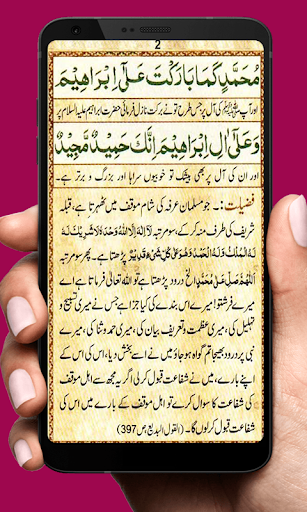 2
مُحَمَّدٍ كَمَا بَارَكْتَ عَلٰى اِبْرَاهِيْمَ
اور آپ ﷺ کی آل پر جس طرح تو نے برکت نازل فرمائی حضرت ابراہیم علیہ السلام پر
وَعَلٰى اٰلِ اِبْرَاهِيْمَ اِنَّكَ حَمِيْدٌ مَّجِيْدٌ
اور ان کی آل پر بھی بیشک تو خوبیوں سراہا اور بزرگ و برتر ہے۔
فضیلت:۔ جو مسلمان عرفہ کی شام موقف میں ٹھہرتا ہے، قبلہ
شریف کی طرف منہ کر کے سو مرتبہ لَآ اِلٰهَ اِلَّا اللّٰهُ وَحْدَهٗ لَا شَرِيْكَ لَهٗ
لَهُ الْمُلْكُ وَلَهُ الْحَمْدُ وَهُوَ عَلٰى كُلِّ شَيْءٍ قَدِيْرٌ پڑھتا ہے۔ پھر سو مرتبہ
اَللّٰهُمَّ صَلِّ عَلٰى مُحَمَّدٍ الخ درود پڑھتا ہے تو اللہ تعالیٰ فرماتا ہے اے
میرے فرشتو! میرے اس بندے کی کیا جزا ہے جس نے میری تسبیح
و تہلیل کی، میری عظمت و تعریف بیان کی، میری حمد و ثنا کی، میرے
نبی پر درود بھیجا تم گواہ ہو جاؤ میں نے اسے بخش دیا، اس کی اس کے
اپنے بارے، میں نے شفاعت قبول کر لی اگر یہ مجھ سے اہل موقف
کی شفاعت کا سوال کرے تو اہل موقف کے بارے میں اس کی
شفاعت قبول کر لوں گا۔ (القول البدیع ص 397)